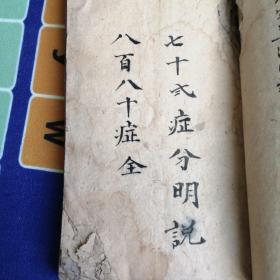 七十弍症分明説
八百八十症全